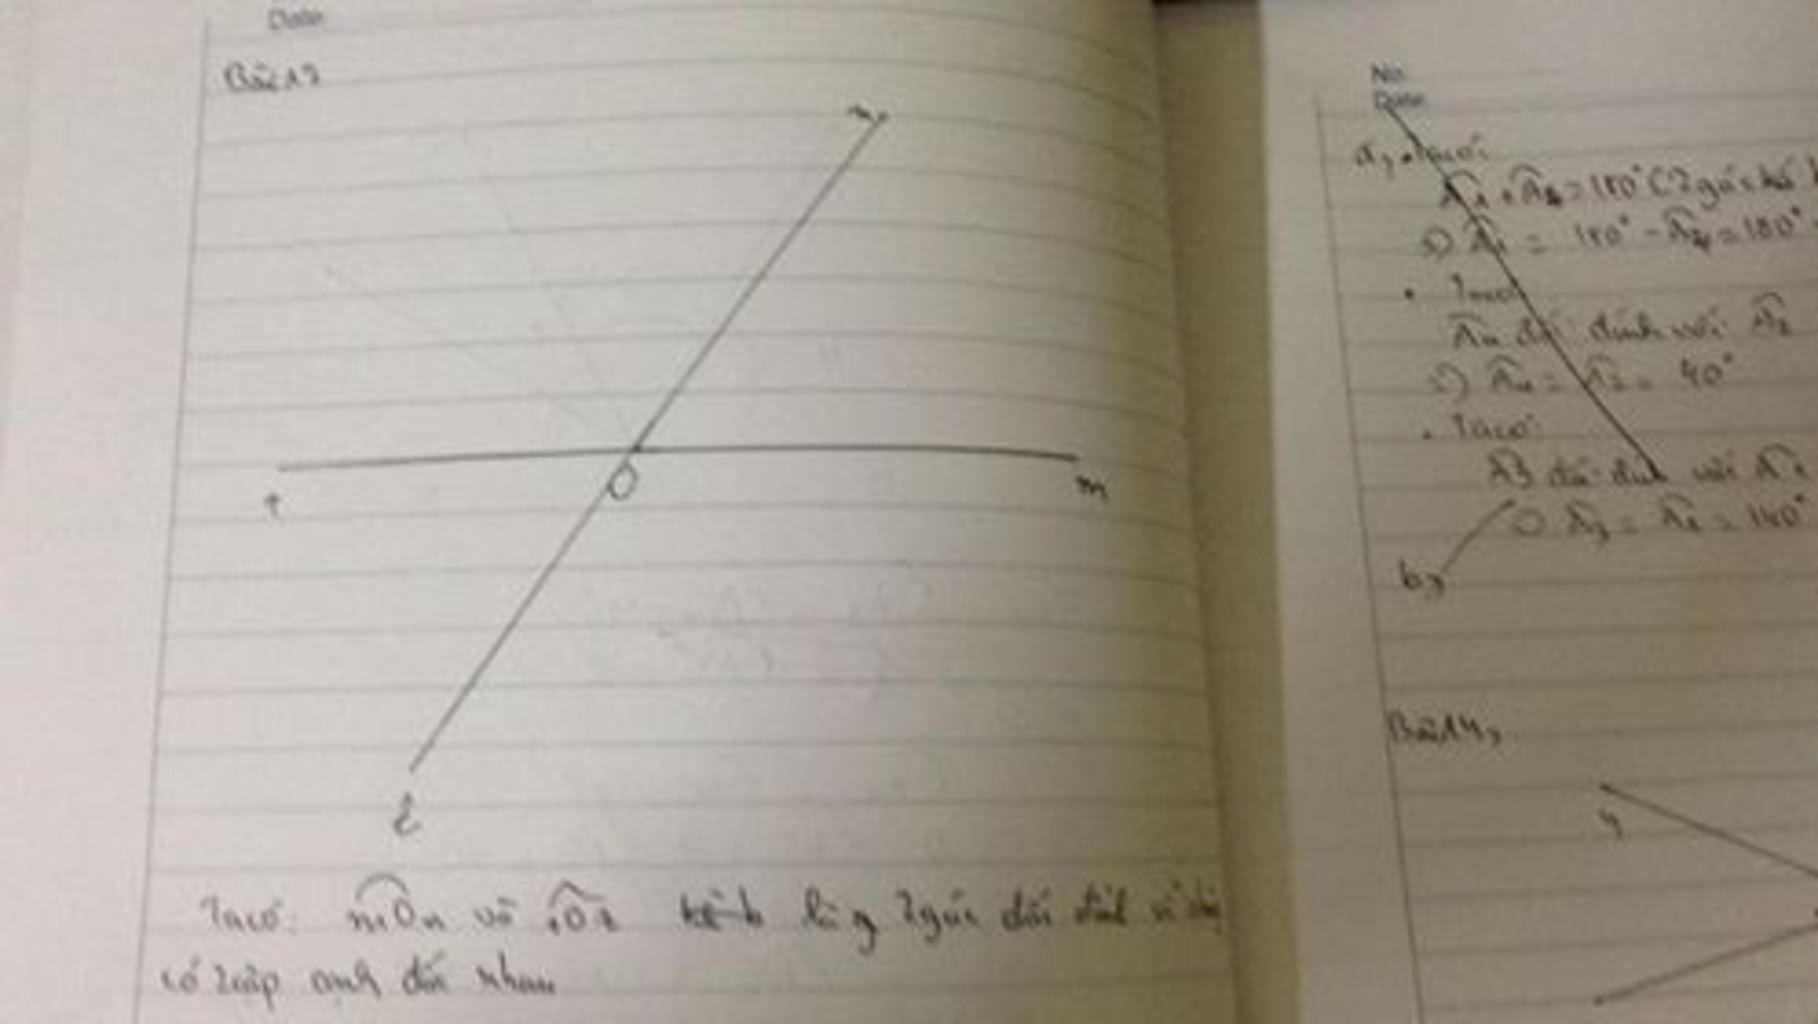 Date
n
O
m
t
z
Ta có: mOn và tOz là 2 góc đối đỉnh vì
có 2 cặp cạnh đối nhau
No
Date
a, Ta có:
A1 + A4 = 180° (2 góc kề
=> A1 = 180° - A4 = 180°
• Ta có
A4 đối đỉnh với A2
=> A4 = A2 = 40°
. Ta có:
A3 đối đỉnh với A1
=> A3 = A1 = 140°
b,
Bài 14,
y